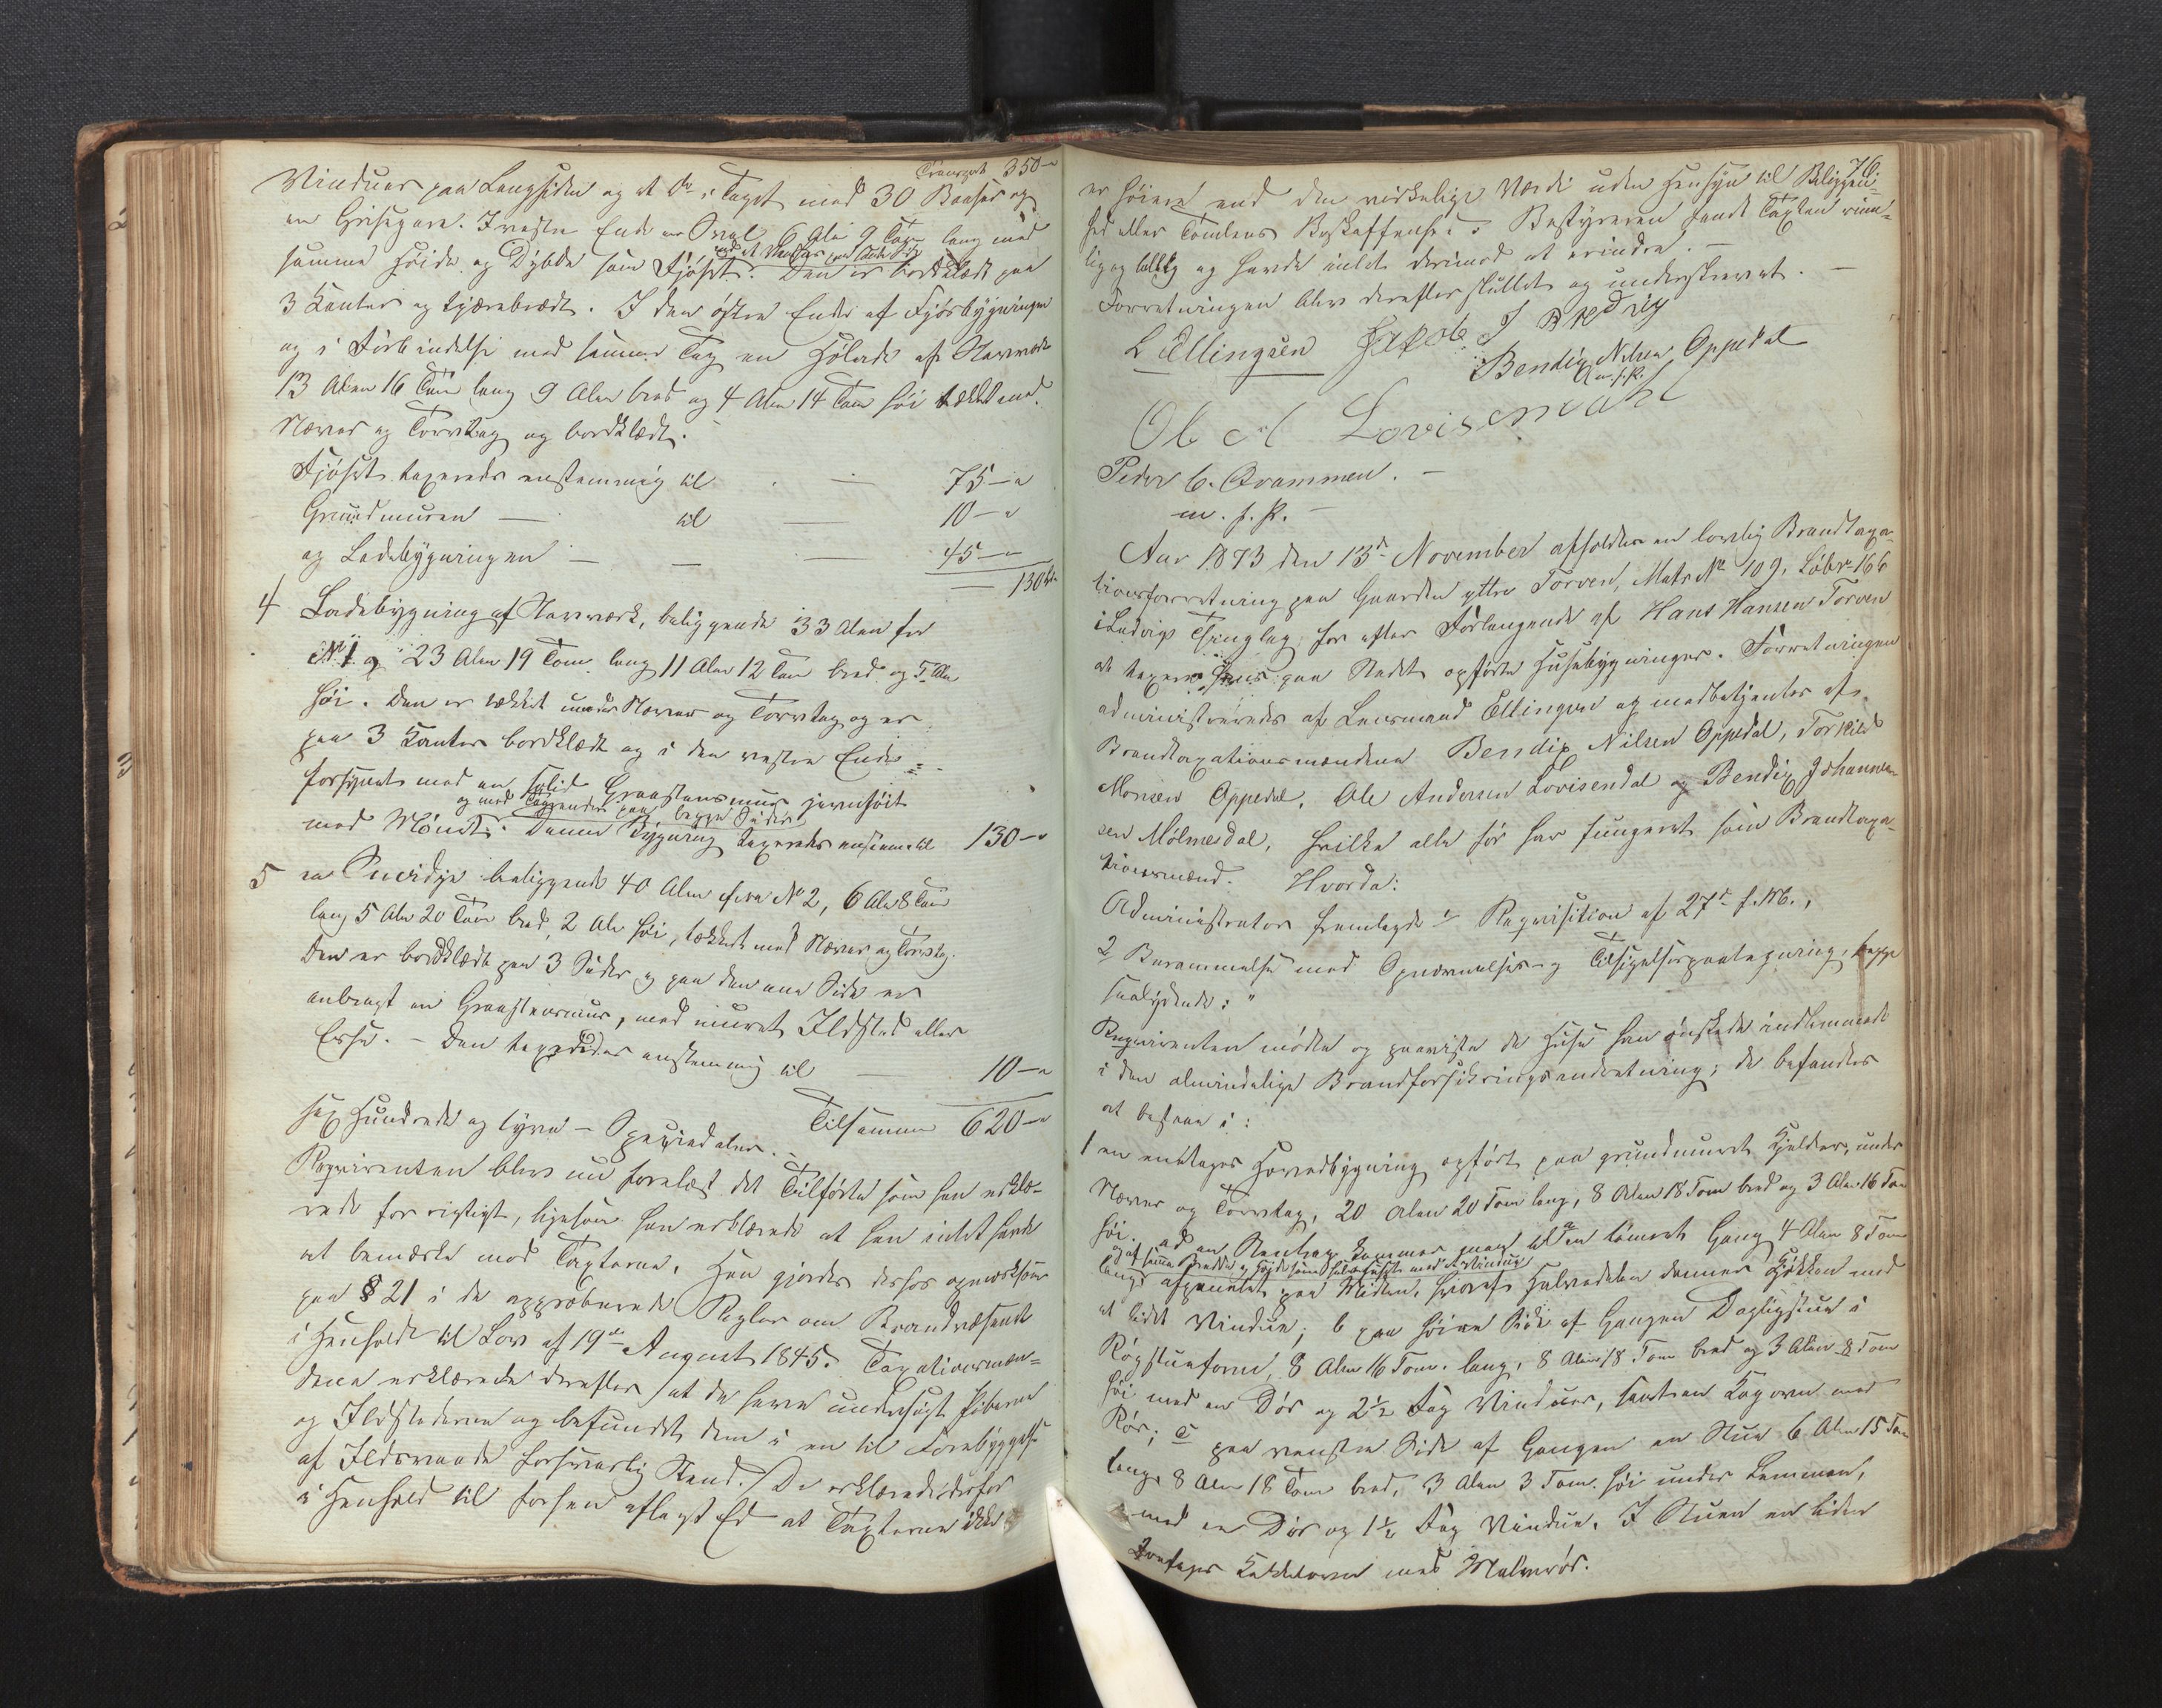 Transport 350-"
Vinduer paa Langsiden og et do i Taget med 30 Baaser og
en Grisegare. I vestre Ende er Sval 6 Alen 9 Tom lang med
samme Høide og Dybde som Fjøset. Den er bordklædt paa
3 Kanter og tjærebrædt. I den østre Ende af Fjøsbygningen
og i Forbindelse med samme Tag en Hølade af Stavværk
13 Alen 16 Tom lang 9 Alen bred og 4 Alen 14 Tom høi tækket med
Næver og Torvtag og bordklædt.
Fjøset taxeredes enstemmig til 75-"
Grundmuren — til — 10-"
og Ladebygningen — — 45-"
— 130-"
4 Ladebygning af Stavværk, beliggende 33 Alen fra
No 1 og 23 Alen 19 Tom lang 11 Alen 12 Tom bred og 5 Alen
høi. Den er tækket under Næver og Torvtag og er
paa 3 Kanter bordklædt og i den vestre Ende
forsynet med en solid Graastensmuur jevnhøit
og med Tagrender paa begge Sider
med Mønet. Denne Bygning taxeredes enstemm. til 130-"
5 en Smidje beliggende 40 Alen fra No 2, 6 Alen 8 Tom
lang 5 Alen 20 Tom bred, 2 Alen høi, tækket med Næver og Torvtag.
Den er bordklædt paa 3 Sider og paa den ene Side er
anbragt en Graastensmuur, med muret Ildsted eller
Esse. – Den taxeredes enstemmig til — 10-"
Tilsammen 620-"
sex Hundrede og tyve – Speciedaler.
Requirenten blev nu forelæst det Tilførte som han erklæ-
rede for rigtigt, ligesom han erklærede at han intet havde
at bemærke mod Taxterne. Han gjordes derhos opmærksom
paa § 21 i de approberede Regler om Brandvæsenet
i Henhold til Lov af 19de August 1845. Taxationsmæn-
dene erklærede derefter at de have undersøgt Piberne
og Ildstederne og befundet dem i en til Forebyggelse
af Ildsvaade forsvarlig Stand. De erklærede derfor
i Henhold til forhen aflagt Ed at Taxterne ikke
76
er høiere end den virkelige Værdi uden Hensyn til Beliggen-
hed eller Tomtens Beskaffenhed. Bestyreren fandt Taxten rime-
lig og billig og havde intet derimod at erindre. –
Forretningen blev derefter sluttet og underskrevet. –
L Ellingsen Jakob J
Bendix Nilsen Oppedal
m. f. P.
Ole A Lovisendahl
Peder C. Qvammen. –
m. f. P. –
Aar 1873 den 13de November afholdtes en lovlig Brandtaxa-
tionsforretning paa Gaarden yttre Torven, Matr No 109, Løbno 166
i Ladvigs Thinglag for efter Forlangende af Hans Hansen Torven
at taxere hans paa Stedet opførte Husebygninger. Forretningen
administreredes af Lensmand Ellingsen og medbetjentes af
Brandtaxationsmændene Bendix Nilsen Oppedal, Torkild
Monsen Oppedal, Ole Andersen Lovisendal og Bendix Johannes-
sen Molmesdal, hvilke alle før har fungeret som Brandtaxa-
tionsmænd. Hvorda:
Administrator fremlagde 1/ Reqvisition af 27de f. M.,
2 Berammelse med Opnævnelses- og Tilsigelsespaategning, begge
saalydende: "
Requirenten mødte og paaviste de Huse han ønskede indlemmede
i den almindelige Brandforsikringsindretning; de befandtes
at bestaae i:
1 en enetages Hovedbygning opført paa grundmuret Kjelder, under
Næver og Torvtag, 20 Alen 20 Tom lang, 8 Alen 18 Tom bred og 3 Alen 16 Tom
høi. en tømret Gang 4 Alen 8 Tom
lang afpanelet paa Midten, hvoraf Halvedelen danner Kjøkken med
et lidet Vindue; b paa høire Side af Gangen Dagligstue i
Røgstueform, 8 Alen 16 Tom. lang, 8 Alen 18 Tom bred og 3 Alen 8 Tom
høi med en Dør og 2½ Fag Vinduer, samt en Kogovn med
Rør; c paa venstre Side af Gangen en Stue 6 Alen 15 Tom
lang, 8 Alen 18 Tom bred, 3 Alen 3 Tom. høi under Lemmen,
med en Dør og 1½ Fag Vindue. I Stuen en liden
Kakkelovn med Malmrør.